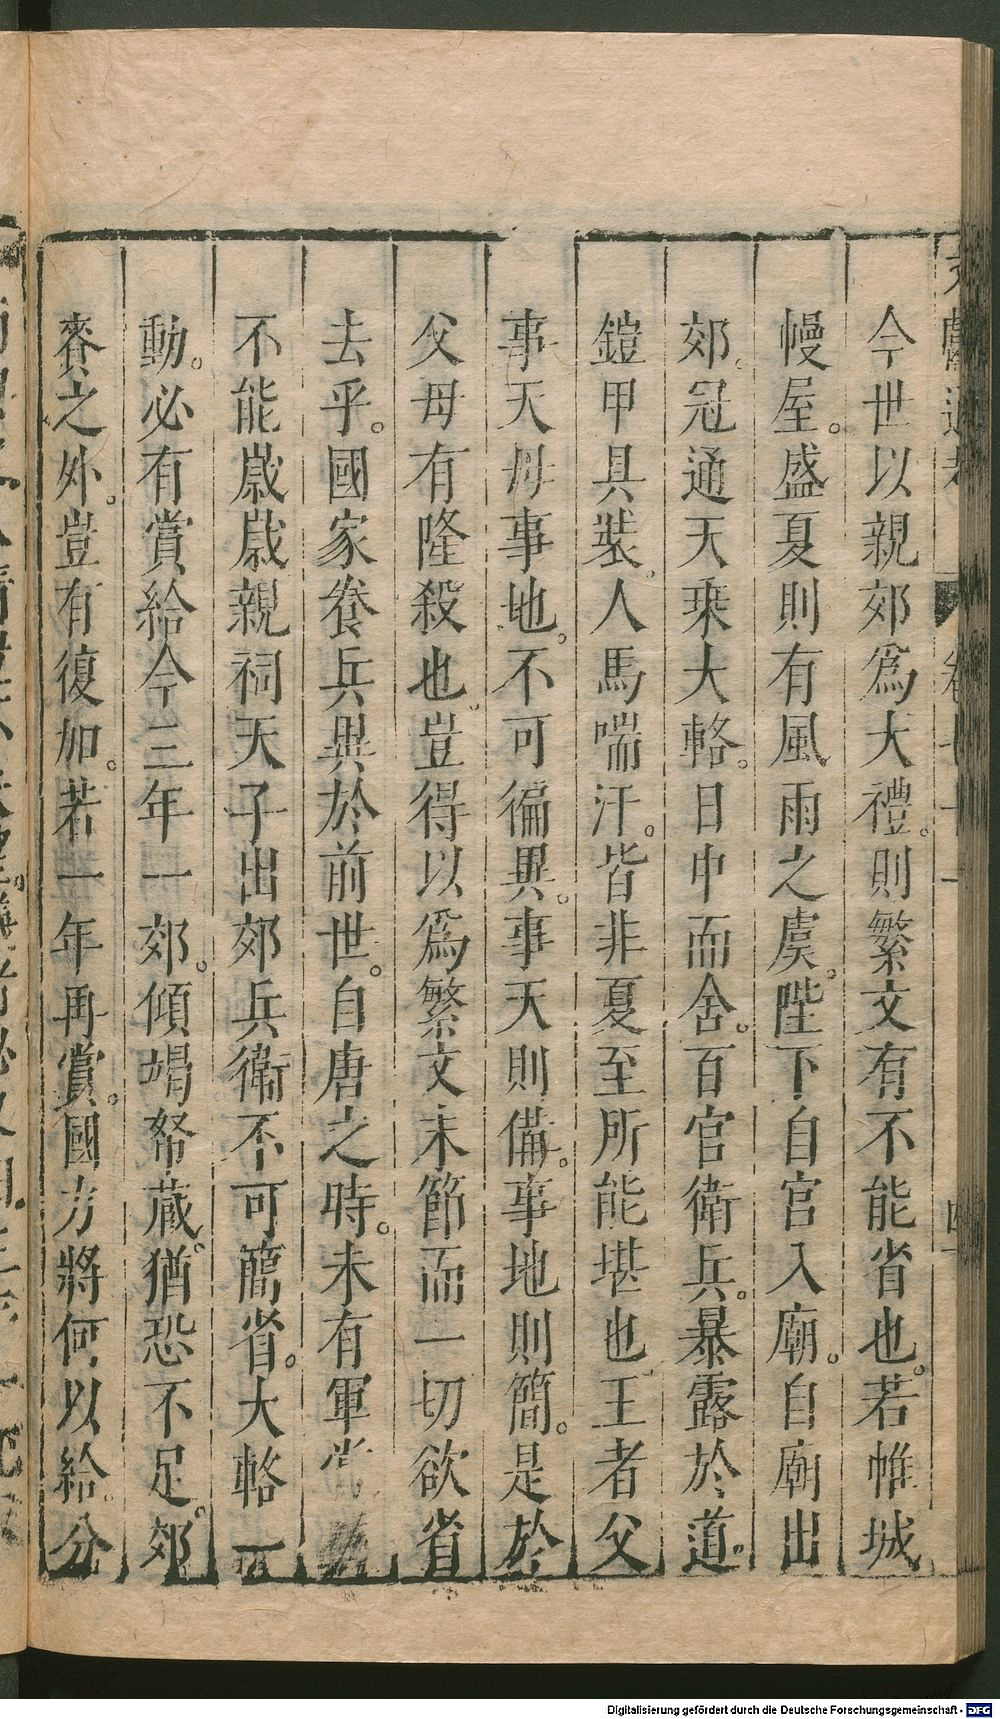 今世以親郊爲大禮。則繁文有不能省也。若帷城
幔屋。盛夏則有風雨之虞。陛下自宮入廟。自廟出
郊。冠通天乘大輅。日中而舍。百官衛兵。暴露於道。
鎧甲具裝。人馬喘汗。皆非夏至所能堪也王者父
事天母事地。不可偏異。事天則備。事地則簡。是於
父母有隆殺也。豈得以爲繁文末節而一切欲省
去乎。國家養兵異於前世。自唐之時。未有軍賞
不能歲歲親祠天子出郊兵衛不可簡省。大輅一
動。必有賞給今三年一郊。傾竭帑藏。猶恐不足。郊
賚之外。豈有復加。若一年再賞。國力將何以給。分
Digitalisierung gefördert durch die Deutsche Forschungsgemeinschaft - DFG